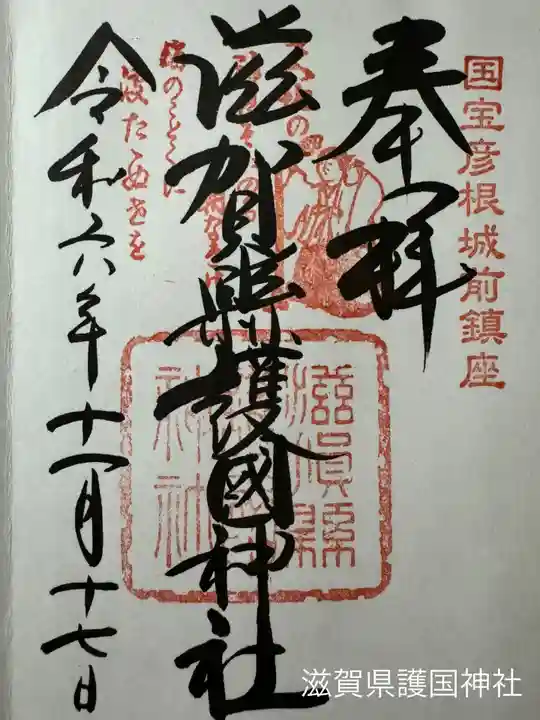 国宝彦根城前鎮座
奉拝
滋賀縣護國神社
令和六年十一月十七日
滋賀縣
護國
神社
滋賀県護国神社